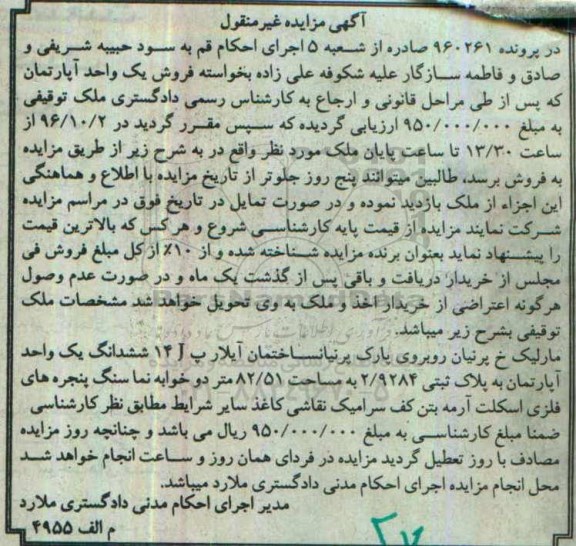 آگهی مزایده غیرمنقول
در پرونده ۹۶۰۲۶۱ صادره از شعبه ۵ اجرای احکام قم به سود حبیبه شریفی و
صادق و فاطمه سازگار علیه شکوفه علی زاده بخواسته فروش یک واحد آپارتمان
که پس از طی مراحل قانونی و ارجاع به کارشناس رسمی دادگستری ملک توقیفی
به مبلغ ۹۵۰/۰۰۰/۰۰۰ ارزیابی گردیده که سپس مقرر گردید در ۹۶/۱۰/۲ از
ساعت ۱۳/۳۰ تا ساعت پایان ملک مورد نظر واقع در به شرح زیر از طریق مزایده
به فروش برسد. طالبین میتوانند پنج روز جلوتر از تاریخ مزایده با اطلاع و هماهنگی
این اجراء از ملک بازدید نموده و در صورت تمایل در تاریخ فوق در مراسم مزایده
شرکت نمایند مزایده از قیمت پایه کارشناسی شروع و هرکس که بالاترین قیمت
را پیشنهاد نماید بعنوان برنده مزایده شناخته شده و از ۱۰٪ از کل مبلغ فروش فی
مجلس از خریدار دریافت و باقی پس از گذشت یک ماه و در صورت عدم وصول
هرگونه اعتراضی از خریدار اخذ و ملک به وی تحویل خواهد شد مشخصات ملک
توقیفی بشرح زیر میباشد.
مارلیک خ پرنیان روبروی پارک پرنیان ساختمان آیلار پ آ ۱۴ ششدانگ یک واحد
آپارتمان به پلاک ثبتی ۲/۹۲۸۴ به مساحت ۸۲/۵۱ متر دو خوابه نما سنگ پنجره های
فلزی اسکلت آرمه بتن کف سرامیک نقاشی کاغذ سایر شرایط مطابق نظر کارشناسی
ضمنا مبلغ کارشناسی به مبلغ ۹۵۰/۰۰۰/۰۰۰ ریال می باشد و چنانچه روز مزایده
مصادف با روز تعطیل گردید مزایده در فردای همان روز و ساعت انجام خواهد شد
محل انجام مزایده اجرای احکام مدنی دادگستری ملارد میباشد.
مدیر اجرای احکام مدنی دادگستری ملارد
م الف ۴۹۵۵